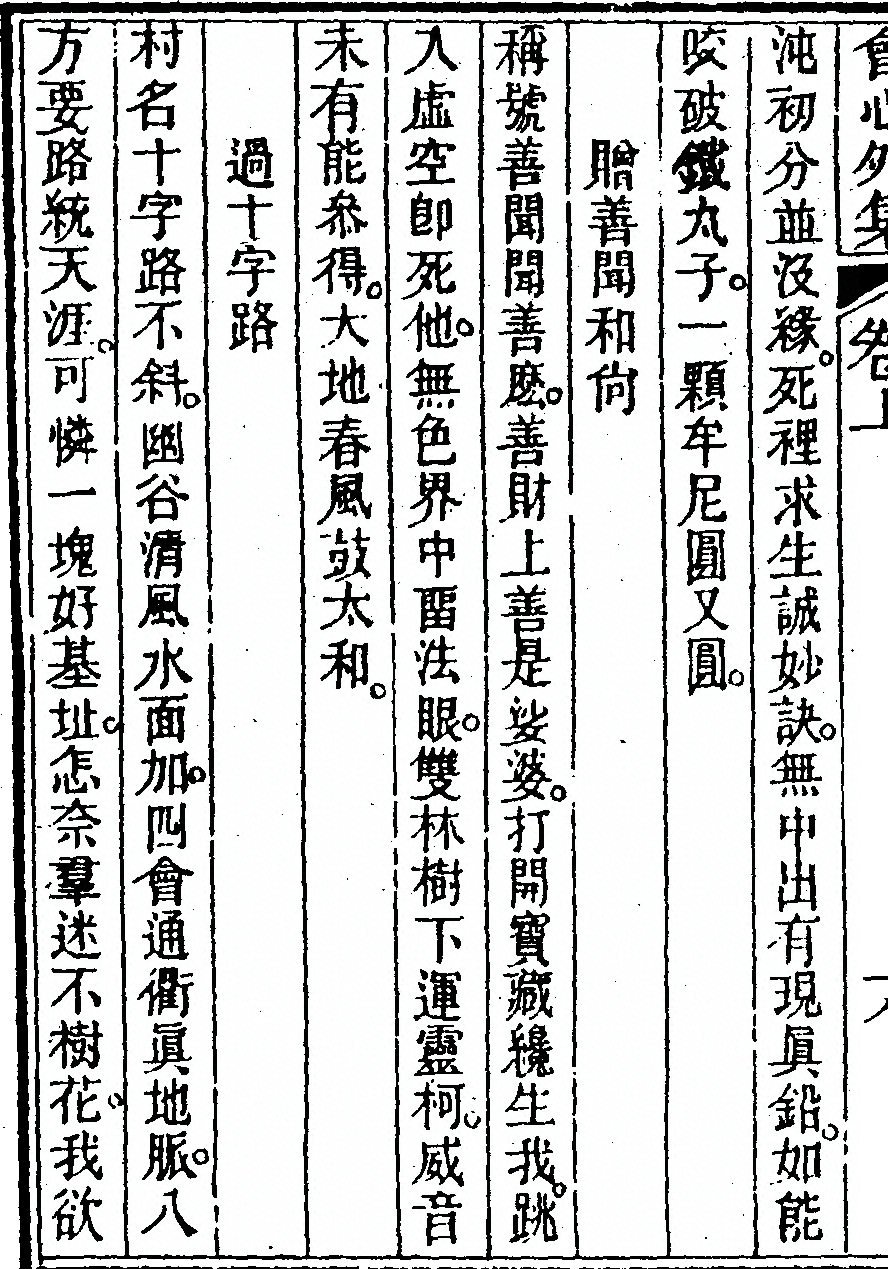 會心外集 卷上
沌初分並沒緣。死裡求生誠妙訣。無中出有現眞鉛。如能
咬破鐵丸子。一顆牟尼圓又圓。
贈善聞和尙
稱號善聞聞善麽。善財上善是娑婆。打開寶藏纔生我。跳
入虛空卽死他。無色界中畱法眼。雙林樹下運靈柯。威音
未有能叅得。大地春風鼓太和。
過十字路
村名十字路不斜。幽谷淸風水面加。四會通衢眞地脈。八
方要路統天涯。可憐一塊好基址。怎奈羣迷不樹花。我欲